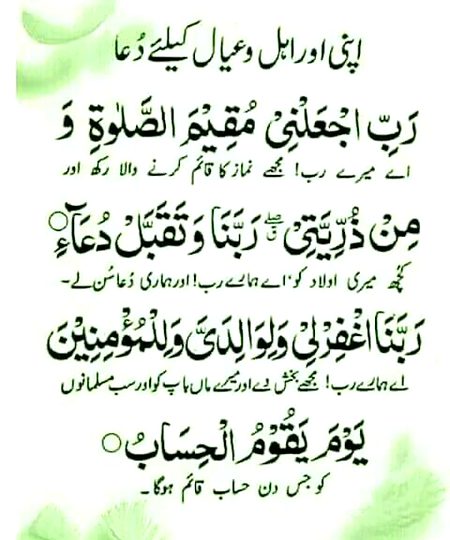 اپنی اور اہل و عیال کیلئے دُعا
رَبِّ اجْعَلْنِیْ مُقِیْمَ الصَّلٰوةِ وَ
اے میرے رب! مجھے نماز کا قائم کرنے والا رکھ اور
مِنْ ذُرِّیَّتِیْ ۖق رَبَّنَا وَتَقَبَّلْ دُعَآءِ ○
کچھ میری اولاد کو، اے ہمارے رب! اور ہماری دُعا سُن لے۔
رَبَّنَا اغْفِرْلِیْ وَلِوَالِدَیَّ وَلِلْمُؤْمِنِیْنَ
اے ہمارے رب! مجھے بخش دے اور میرے ماں باپ کو اور سب مسلمانوں
یَوْمَ یَقُوْمُ الْحِسَابُ ○
کو جس دن حساب قائم ہوگا۔